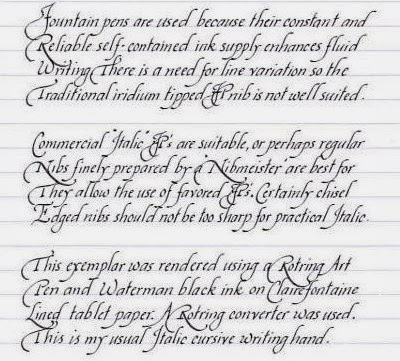 Fountain pens are used because their constant and
Reliable self-contained ink supply enhances fluid
Writing There is a need for line variation so the
Traditional iridium tipped FP nib is not well suited.
Commercial "Italic" FP's are suitable, or perhaps regular
Nibs finely prepared by a "Nibmeister" are best for
They allow the use of favored FP's. Certainly chisel
Edged nibs should not be too sharp for practical Italic.
This exemplar was rendered using a Rotring Art
Pen and Waterman black ink on Clairefontaine
Lined tablet paper. A Rotring converter was used.
This is my usual Italic cursive writing hand.